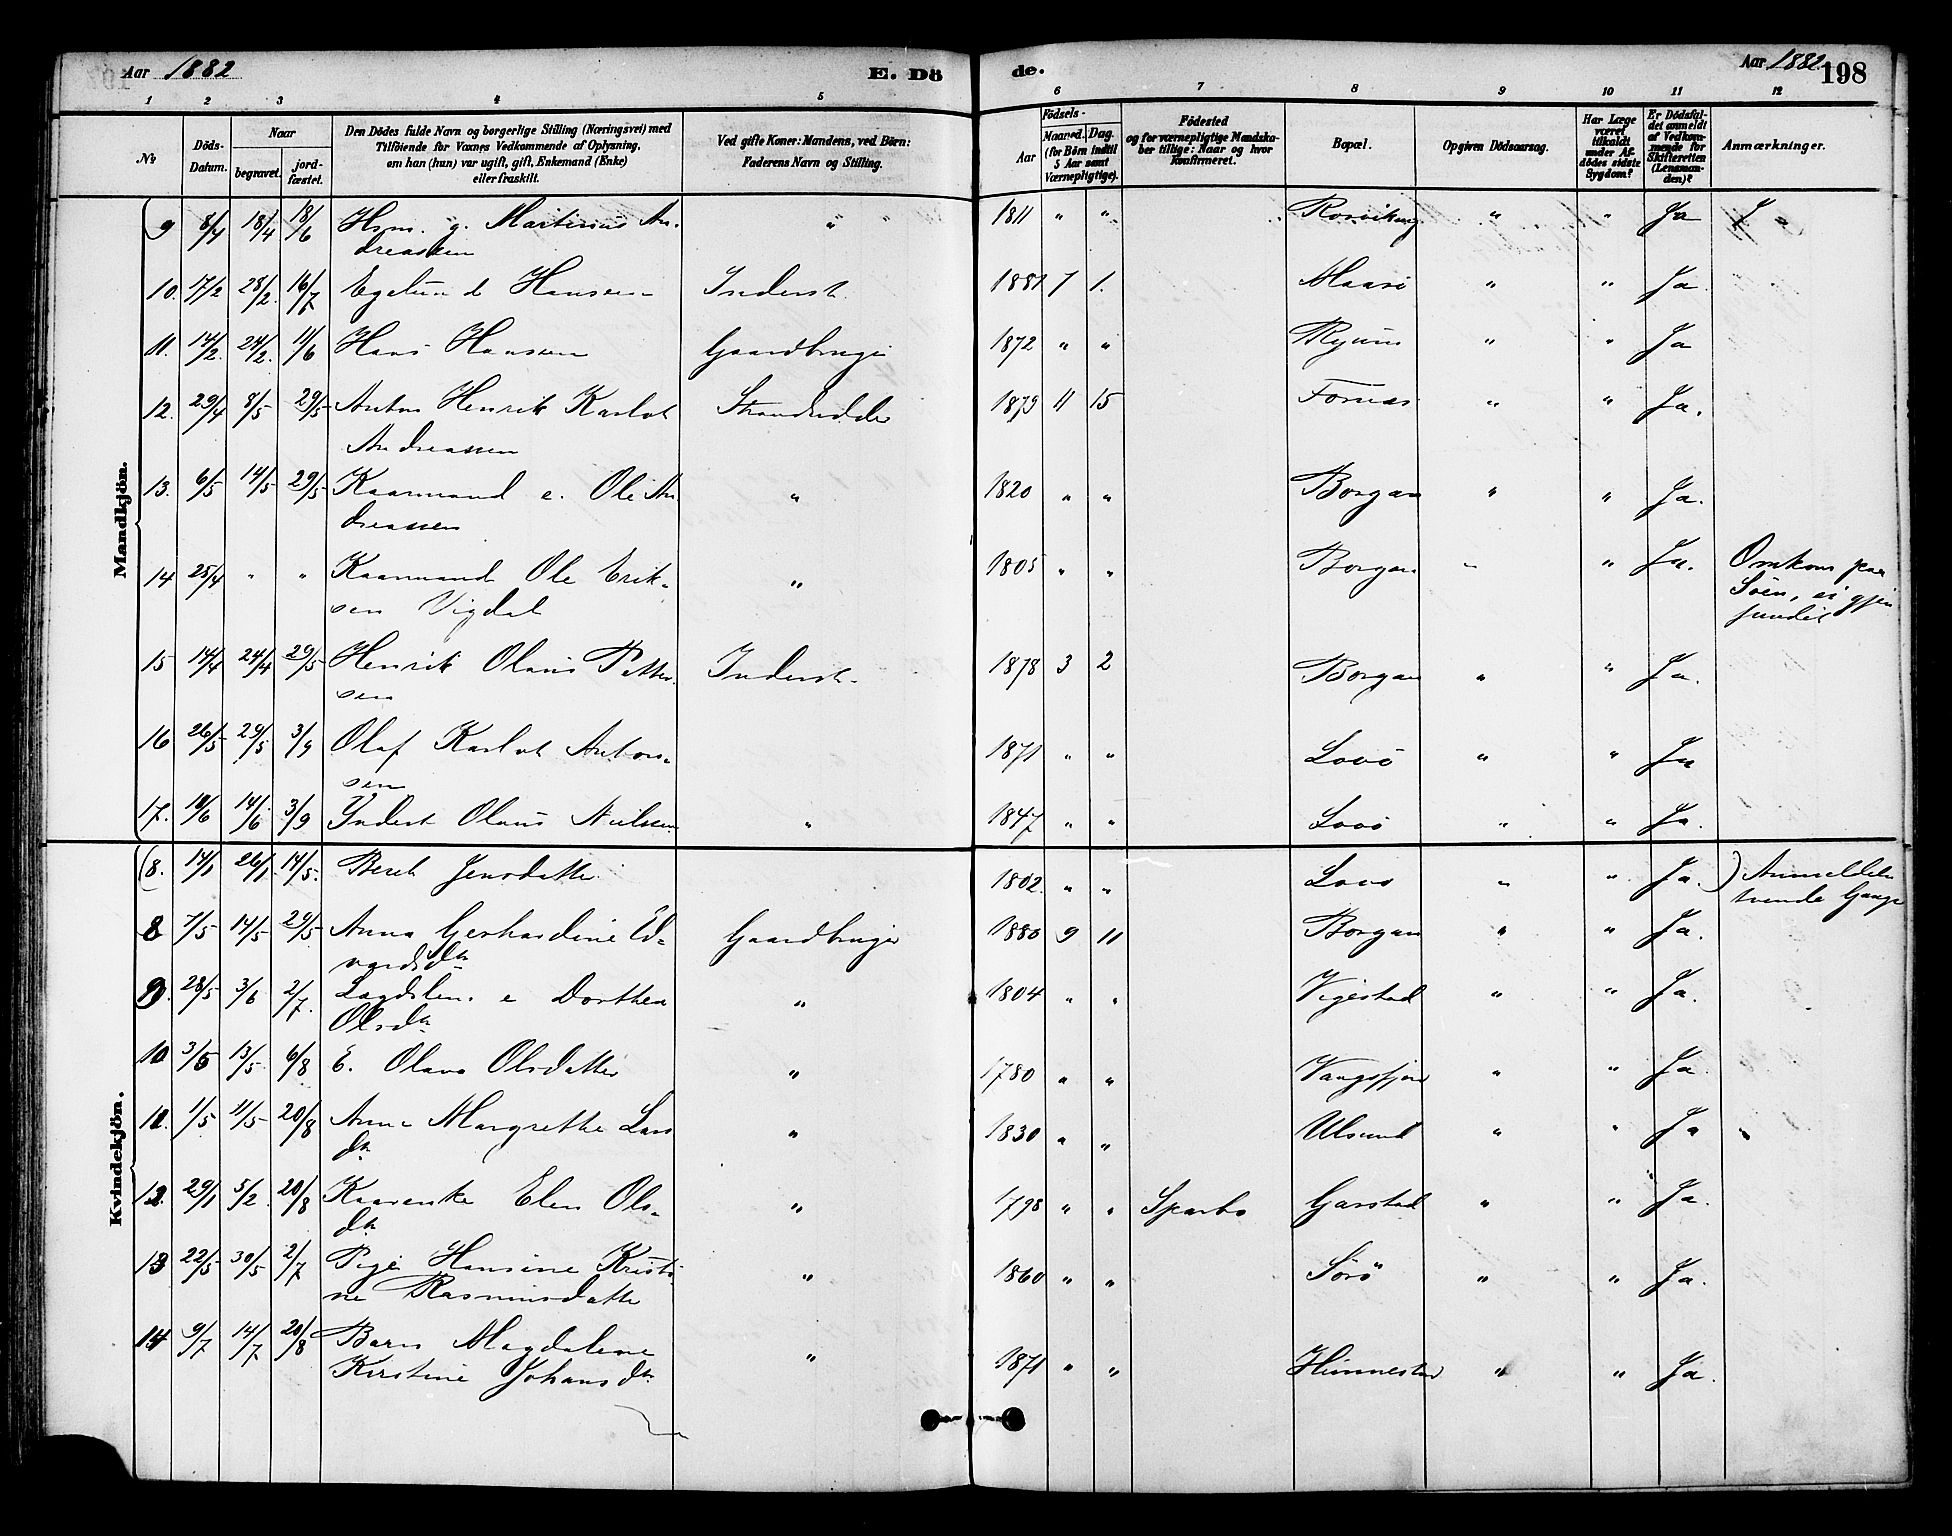 Aar 1882 E. Dö
de. Aar 1882 198
1 2 3 4 5 6 7 8 9 10 11 12
No Döds-Datum. Naar begravet. jordfæstet. Den Dödes fulde Navn og borgerlige Stilling (Næringsvei) med Tilföiende for Voxnes Vedkommende af Oplysning, om han (hun) var ugift, gift, Enkemand (Enke) eller fraskilt. Ved gifte Koner: Mandens, ved Börn: Faderens Navn og Stilling. Födsels- Aar Maaned. Dag. (for Börn indtil 5 Aar samt Værnepligtige). Födested og for værnepligtige Mandskaber tillige: Naar og hvor Konfirmeret. Bopæl. Opgiven Dödsaarsag. Har Læge været tilkaldt under Afdödes sidste Sygdom? Er Dödsfaldet anmeldt af Vedkommende for Skifteretten (Lensmanden)? Anmærkninger.
Mandkjön.
9 8/4 18/4 18/6 Hsm. g. Martinus An- " 1811 " " " " Ja
dreassen
10. 17/2 28/2. 16/7 Egelund Hansen Inderst. 1881 7 1. Maasö " " Ja
11. 14/2. 24/2. 11/6 Hans Hansen Gaardbruger 1872 " " Ryum " " Ja
12. 29/4 8/5 29/5 Anton Henrik Karlot Strandsidder 1879 11 15 Fornes " " Ja.
Andreassen
13. 6/5 14/5 29/5 Kaarmand e. Ole An " 1820 " " Borgan " " Ja.
dreassen
14 25/4 " " Kaarmand Ole Erik- " 1805 " " Borgan " " Ja. Omkom paa
sen Vigdal Söen, ei gjen
fundet
15 14/4 24/4 29/5 Henrik Olaus Petter Inderst. 1878 3 2 Borgan " " Ja.
sen
16 26/5 29/5 3/9 Olaf Karlot Anton- 1871 " " Lovö " " Ja
sen
17. 10/6 14/6 3/9 Inderst Olaus Nielssen " 1847 " " Lovö " " Ja.
Kvindekjön.
(8. 14/1 26/1 14/5. Beret Jensdatter 1802. " " Lovö " " Ja ) Anmeldelse
tvende Gange
8 7/5 14/5 29/5 Anna Gerhardine Ed- Gaardbruger 1880 9 11 Borgan " " Ja.
vardsdtr
9. 28/5 3/6 2/7. Lægdslem. e Dorthea " 1804 " " Vigestad " " Ja.
Olsdtr
10 3/5 13/5 6/8 E. Olava Olsdatter " 1780 " " Vangsfjord " " Ja
11. 1/5 11/5 20/8 Anna Margrethe Lars " 1830 " " Ulsund " " Ja "
dtr
12. 29/1 5/2. 20/8 Kaarenke Elen Ols- " 1798 " " Sparbo Garstad " " Ja.
dtr
13 22/5 30/5 2/7 Pige Hansine Kristi " 1860 " " Sörö " " Ja.
ne Rasmusdatter
14 9/7 14/7 20/8 Barn Magdalene " 1871 " " Hunnestad " " Ja.
Kirstine Johansdtr